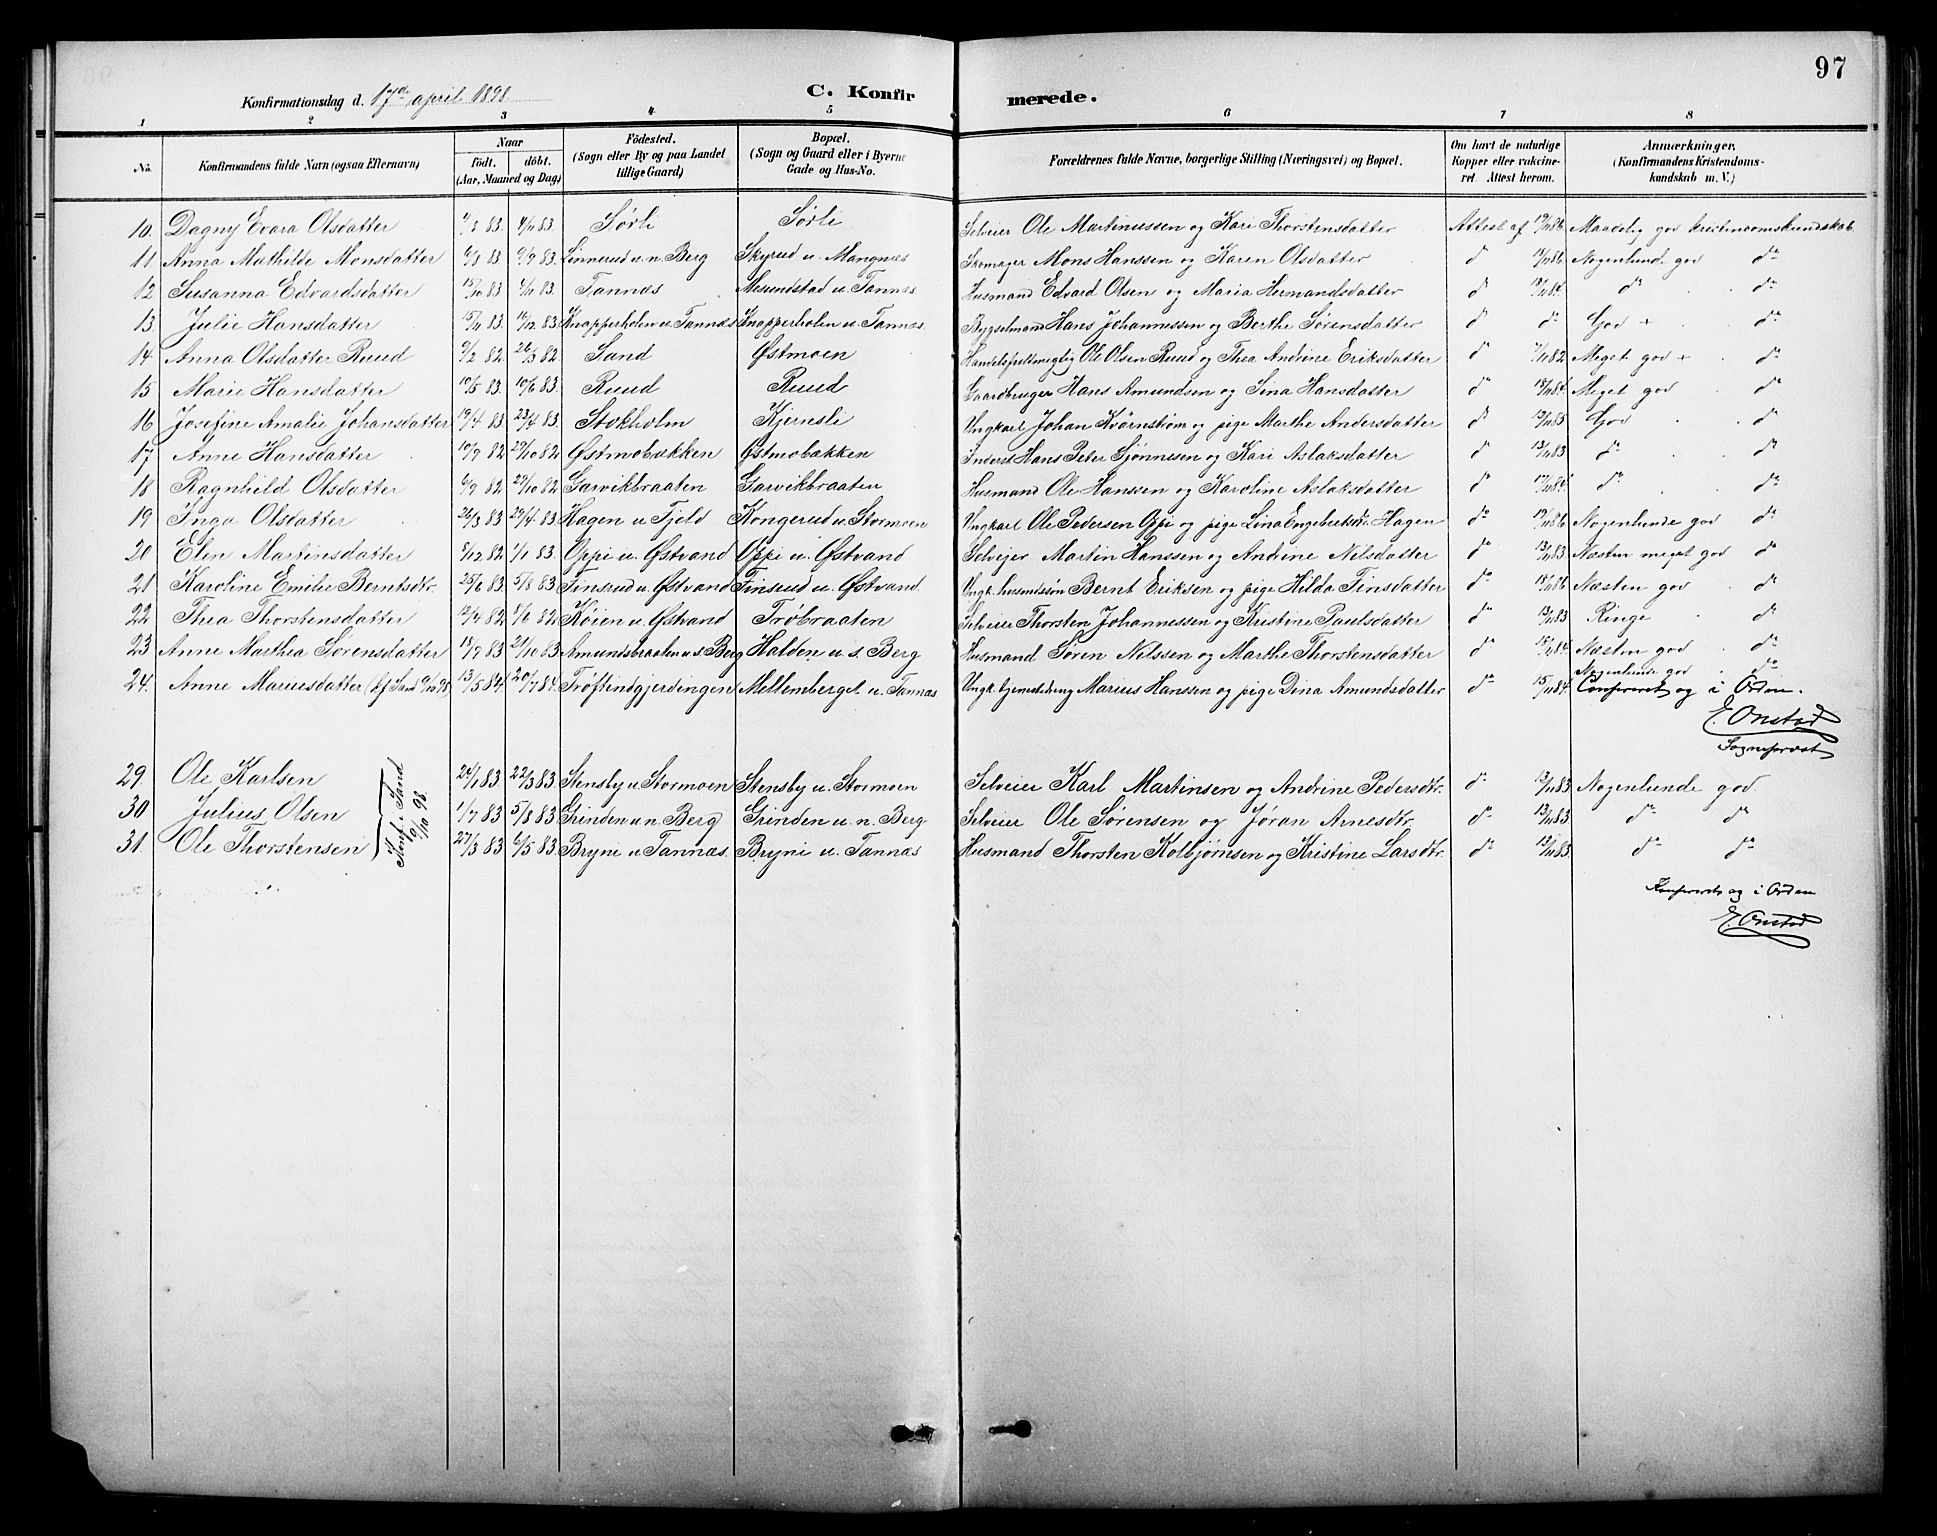 97
Konfirmationsdag d. 17de april 1898
C. Konfir merede.
1 2 3 4 5 6 7 8
No. Konfirmandens fulde Navn (ogsaa Efternavn) Naar födt. döbt. (Aar, Maaned og Dag) Födested. (Sogn eller By og paa Landet tillige Gaard) Bopæl. (Sogn og Gaard eller i Byerne Gade og Hus-No. Forældrenes fulde Navne, borgerlige Stilling (Næringsvei) og Bopæl. Om havt de naturlige Kopper eller vakcineret. Attest herom. Anmærkninger. (Konfirmandens Kristendomskundskab m. V.)
10. Dagny Evara Olsdatter 4/11 83. Sørli Sørli Selveier Ole Martinussen og Kari Thorstensdatter Attest af Maadelig god kristendomskundskab
11 Anna Mathilde Monsdatter 6/8 83 9/9 83. Linnerud u. n. Berg Skyrud u. Mangnæs Skomager Mons Hanssen og Karen Olsdatter do Nogenlunde god do
12 Susanna Edvardsdatter 15/10 83 4/11 83. Tannæs Mesundstad u. Tannæs Husmand Edvard Olsen og Maria Hermandsdatter do do do
13 Julie Hansdatter 15/11 83. 16/12 83. Knapperholen u. Tannæs Knapperholen u. Tannæs. Bygselmand Hans Johannessen og Berthe Sørensdatter do do God + do
14 Anna Olsdatter Ruud 9/2 82 26/3 82 Sand Østmoen Handelsfuldmegtig Ole Olsen Ruud og Thea Andrine Eriksdatter do 7/11 82 Meget god + do
15 Marie Hansdatter 10/5 83. 10/6 83. Ruud Ruud Gaardbruger Hans Amundsen og Sina Hansdatter do 18/11 84. Meget god do
16 Josefine Amalie Johansdatter 19/4 83 23/4 83. Stokholm Kjernsli Ungkarl Johan Kvørnstrøm og pige Marthe Andersdatter do 12/11 85 God do
17 Anne Hansdatter 10/9 82 29/10 82 Østmobækken Østmobækken Inderst Hans Peter Sjønnesen og Kari Aslaksdatter do 13/11 83 do do
18 Ragnhild Olsdatter 6/9 82 29/10 82 Garvikbraaten Garvikbraaten Husmand Ole Hanssen og Karoline Aslaksdatter do 17/11 84. do do
19 Inga Olsdatter 26/3 83 29/4 83 Hagen u. Fjeld Kongerud u. Stormoen Ungkarl Ole Pedersen Oppi og pige Lina Engebretsdtr. Hagen do Nogenlunde god do
20 Elen Martinsdatter 8/12 82 1/1 83. Oppi u. Østvand Oppi u. Østvand Selvejer Martin Hanssen og Andrine Nilsdatter do 13/11 83 Næsten meget god do
21 Karoline Emilie Berntsdtr. 25/6 83 5/8 83 Finsrud u. Østvand Finsrud u. Østvand. Ungk. husmdssøn Bernt Eriksen og pige Hilda Finsdatter do Næsten god do
22 Thea Thorstensdatter 12/4 82 5/6 82 Køien u. Østvand Trøbraaten Selveier Thorsten Johannessen og Kristine Paulsdatter do 13/11 83 Ringe do
23 Anne Marthea Sørensdatter 18/9 83 21/10 83 Amundsbraaten u. s. Berg Holden u. s. Berg Husmand Søren Nilssen og Marthe Thorstensdatter do 15/11 84. Næsten god do
24. Anne Mariusdatter (kf. Sand 9/10 98) 13/5 84. 20/7 84. Trøftindgjerdingen Mellemberget u. Tannæs Ungk. Marius Hanssen og pige Dina Amundsdatter do 15/11 84. Nogenlunde god do
Confereret og i Orden.
E. Onstad
Sogneprest
29. Ole Karlsen 24/1 83. 22/3 83. Stensby u. Stormoen Stensby u. Stormoen Selveier Karl Martinsen og Andrine Pedersdtr. do 13/11 83 Nogenlunde god
30 Julius Olsen 1/7 83 5/8 83 Grinden u. n. Berg Grinden u. n. Berg Selveier Ole Sørensen og Jøran Arnesdtr. do 13/11 83 do do
31. Ole Thorstensen 27/3 83 6/5 83. Bryni u. Tannæs. Bryni u. Tannæs Husmand Thorsten Kolbjørnsen og Kristine Larsdtr. do do do
Konf. i Sand 9/10 98.
Konfereret og i Orden
E. Onstad